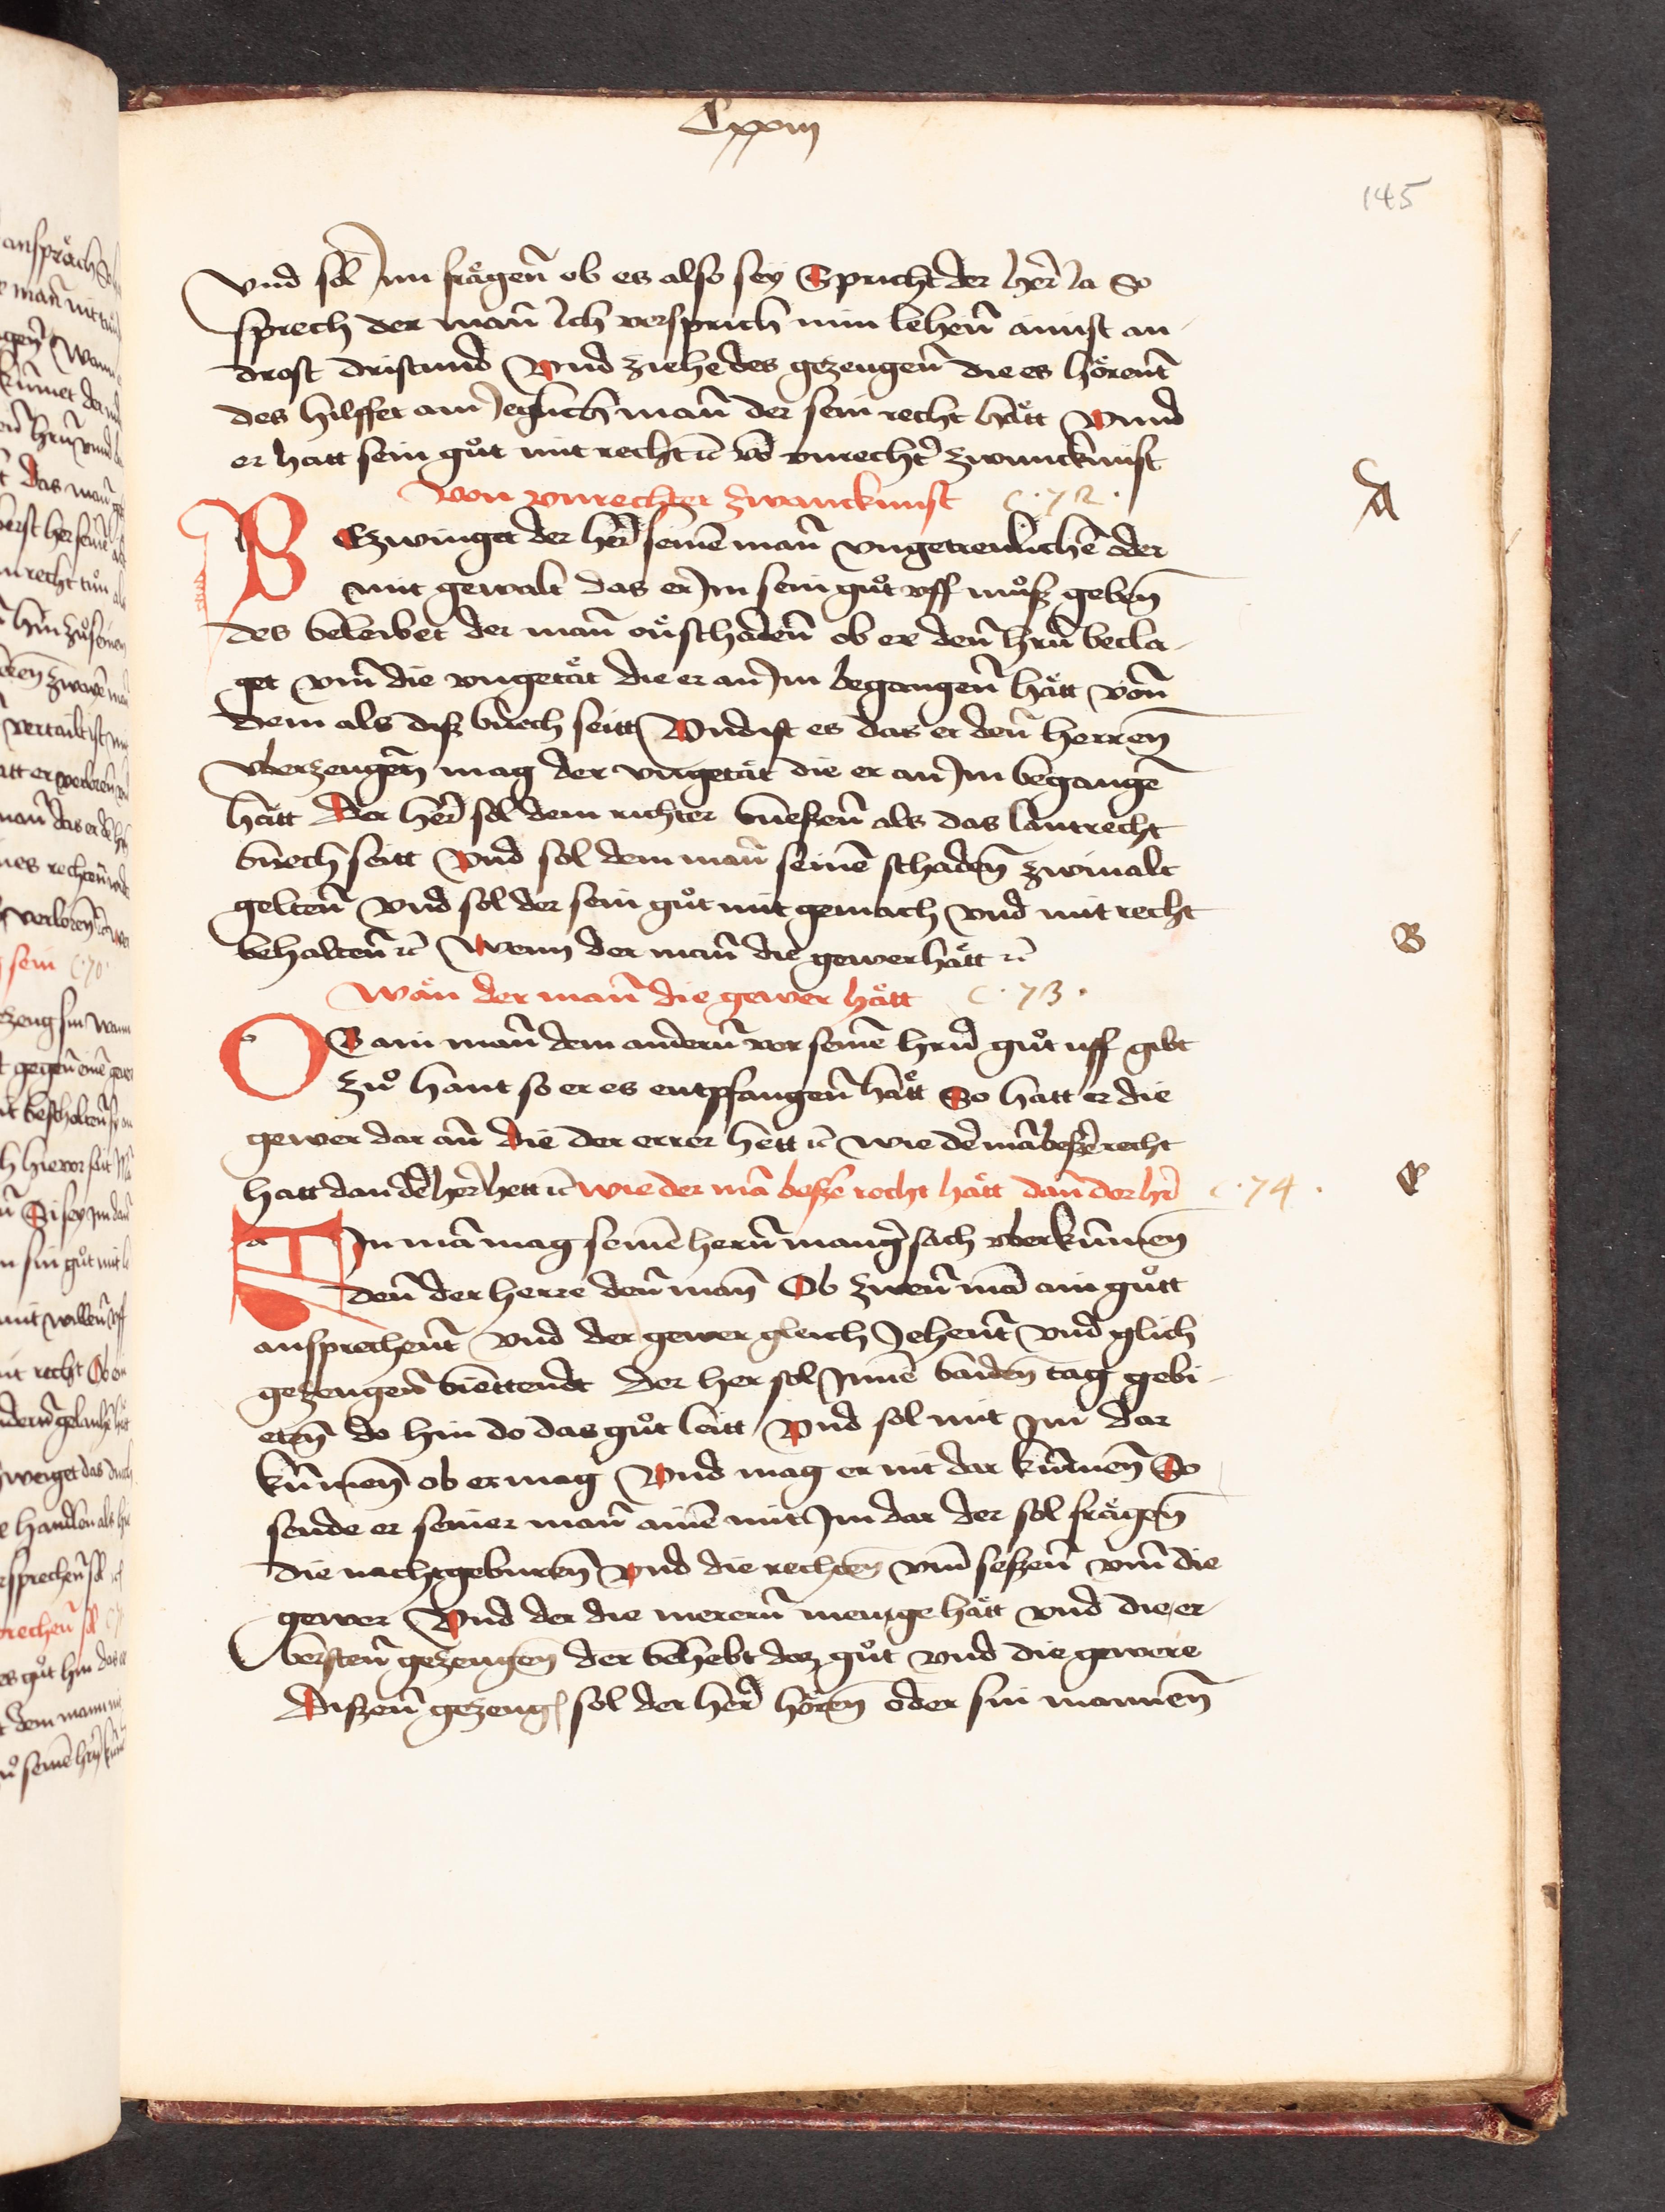 Cxxiii
145
Vnd sol Jm frägen̄ ob es also sey Spricht der her̄ Ja So
sprech der man̄ Jch versprich min lehen̄ ainist an-
drost dristund Vnd ziehe des gezeugen̄ die es hören̄t
des hilffet ain Jeglich man̄ der sein recht hätt Vnnd
er hatt sein gůt mit recht ꝛc̄ Vō vnrechtē zwanckniist
Von vnrechter zwancknust c · 72 ·
A
BEzwinget der her̄ seinē man̄ vngetrewlichē oder
mit gewalt das er Jm sein gůt vff můsz geben̄
des beleibet der man̄ on̄ schaden̄ ob er den̄ hrn̄ becla-
get vm̄ die vngetät die er an Jm begangen̄ hätt von̄
dem als disz buech seitt Vnd ist es das er den̄ herren̄
vberzeugen̄ mag der vngetät die er an Jm begangē
hätt Der her̄ sol dem richter buessen̄ als das lantrecht
buech seitt Vnd sol dem man̄ seinē schaden̄ zwinalt
gelten̄ vnd sol der sein gůt mit gemach vnd mit recht
behalten̄ ꝛc̄ Wenn der man̄ die gewer hätt ꝛc̄
B
Wän der man̄ die gewer hätt c · 73 ·
OB ain man̄ dem andern̄ vor seinē hrn̄ gůt uff gibt
zů hant so er es entpfangen̄ hätt So hatt er die
gewer dar an̄ Die der errer hett ꝛc̄ wie dē mā besz̄e recht
hatt dan dē her̄ hett ꝛc̄ wie der mā besz̄e recht hätt dan̄ der hr̄ c · 74 ·
C
AIn mā mag seinē hern̄ mangē sach vberkumen̄
den̄ der herre den̄ man̄ Ob zwen̄ mā ain gůtt
ansprechen̄t vnd der gewer gleich Jehen̄t vnd glich
gezeugen̄ biettendt Der her sol Jnnē baiden̄ tag gebi-
eten̄ do hin do das gůt leitt Vnd sol mit Jm dar
kummen̄ ob er mag Vnd mag er nit dar kummen̄ So
sende er seiner man̄ ainē mit Jm dar der sol frägen̄
die nachtgeburen̄ vnd die rechten̄ vm̄ sessen̄ vm̄ die
gewer Vnd der die merern̄ menige hätt vnd die er-
bersten̄ gezeugen̄ der behebt daz gůt vnd die gewere
Diszen̄ gezeug sol der her̄ hören̄ oder sin mannen̄